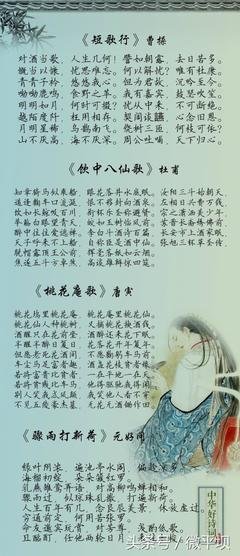 《短歌行》曹操
对酒当歌，人生几何！譬如朝露，去日苦多。
慨当以慷，忧思难忘。何以解忧？唯有杜康。
青青子衿，悠悠我心。但为君故，沉吟至今。
呦呦鹿鸣，食野之苹。我有嘉宾，鼓瑟吹笙。
明明如月，何时可掇？忧从中来，不可断绝。
越陌度阡，枉用相存。契阔谈讌，心念旧恩。
月明星稀，乌鹊南飞。绕树三匝，何枝可依？
山不厌高，海不厌深。周公吐哺，天下归心。
《饮中八仙歌》杜甫
知章骑马似乘船，眼花落井水底眠。汝阳三斗始朝天，
道逢麴车口流涎，恨不移封向酒泉。左相日兴费万钱，
饮如长鲸吸百川，衔杯乐圣称避贤。宗之潇洒美少年，
举觞白眼望青天，皎如玉树临风前。苏晋长斋绣佛前，
醉中往往爱逃禅。李白斗酒诗百篇，长安市上酒家眠，
天子呼来不上船，自称臣是酒中仙。张旭三杯草圣传，
脱帽露顶王公前，挥毫落纸如云烟。
焦遂五斗方卓然，高谈雄辩惊四筵。
《桃花庵歌》唐寅
桃花坞里桃花庵，桃花庵里桃花仙。
桃花仙人种桃树，又摘桃花换酒钱。
酒醒只在花前坐，酒醉还来花下眠。
半醒半醉日复日，花落花开年复年。
但愿老死花酒间，不愿鞠躬车马前。
《骤雨打新荷》元好问
绿叶阴浓，遍池亭水阁，偏趁凉多。
海榴初绽，朵朵蹙红罗。
乳燕雏莺弄语，对高柳鸣蝉相和。
骤雨过，似琼珠乱撒，打遍新荷。
人生百年有几，念良辰美景，休放虚过。
穷通前定，何用苦张罗。
命友邀宾玩赏，对芳尊，浅酌低歌。
中华好诗词
头条号／微平坝